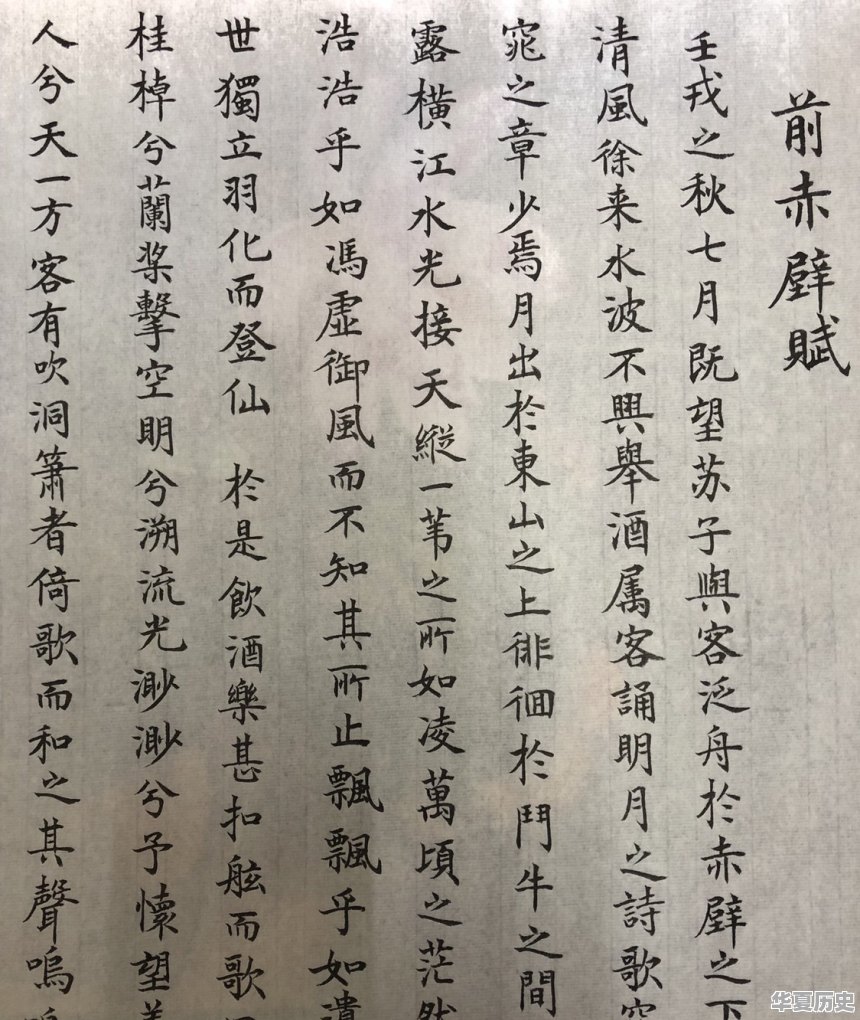 前赤壁賦
壬戎之秋七月既望苏子與客泛舟於赤壁之下
清風徐来水波不興舉酒属客誦明月之詩歌窈
窕之章少焉月出於東山之上徘徊於鬥牛之間
露橫江水光接天縱一苇之所如凌萬頃之茫然
浩浩乎如馮虛御風而不知其所止飄飄乎如遺
世獨立羽化而登仙 於是飲酒樂甚扣舷而歌
桂棹兮蘭桨擊空明兮溯流光渺渺兮予懷望美
人兮天一方客有吹洞箫者倚歌而和之其聲嗚
华夏历史